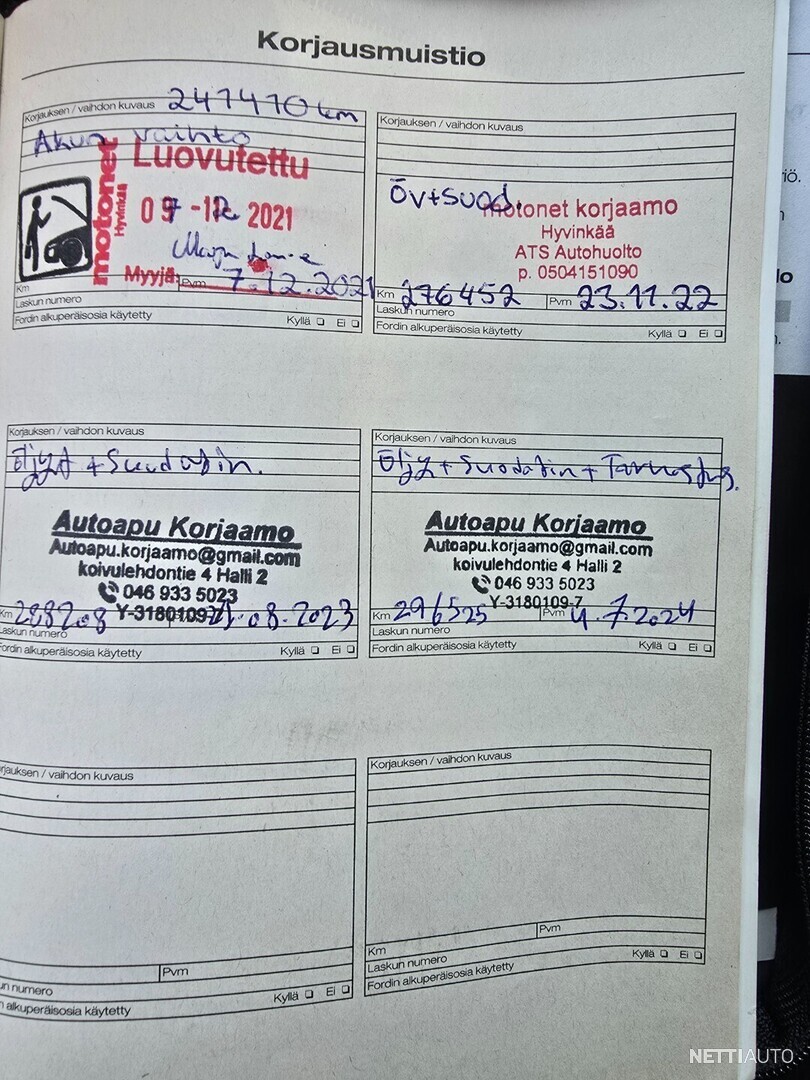 Korjausmuistio
Korjauksen / vaihdon kuvaus 247470 km
Akun vaihto
Luovutettu
motonet
Hyvinkää
07 -12 2021
Myyjä:
Km Pvm 7.12.2021
Laskun numero
Fordin alkuperäisosia käytetty Kyllä Ei
Korjauksen / vaihdon kuvaus
Öv+suod.
motonet korjaamo
Hyvinkää
ATS Autohuolto
p. 0504151090
Km 276452 Pvm 23.11.22
Laskun numero
Fordin alkuperäisosia käytetty Kyllä Ei
Korjauksen / vaihdon kuvaus
Öljyt + Suodatin.
Autoapu Korjaamo
Autoapu.korjaamo@gmail.com
koivulehdontie 4 Halli 2
046 933 5023
Y-3180109-7
Km 288208 .08.2023
Laskun numero
Fordin alkuperäisosia käytetty Kyllä Ei
Korjauksen / vaihdon kuvaus
Öljyt + Suodatin +
Autoapu Korjaamo
Autoapu.korjaamo@gmail.com
koivulehdontie 4 Halli 2
046 933 5023
Y-3180109-7
Km 296525 Pvm 4.7.2024
Laskun numero
Fordin alkuperäisosia käytetty Kyllä Ei
rjauksen / vaihdon kuvaus
Pvm
un numero
alkuperäisosia käytetty Kyllä Ei
Korjauksen / vaihdon kuvaus
Km Pvm
Laskun numero
Fordin alkuperäisosia käytetty Kyllä Ei
NETTIAUTO